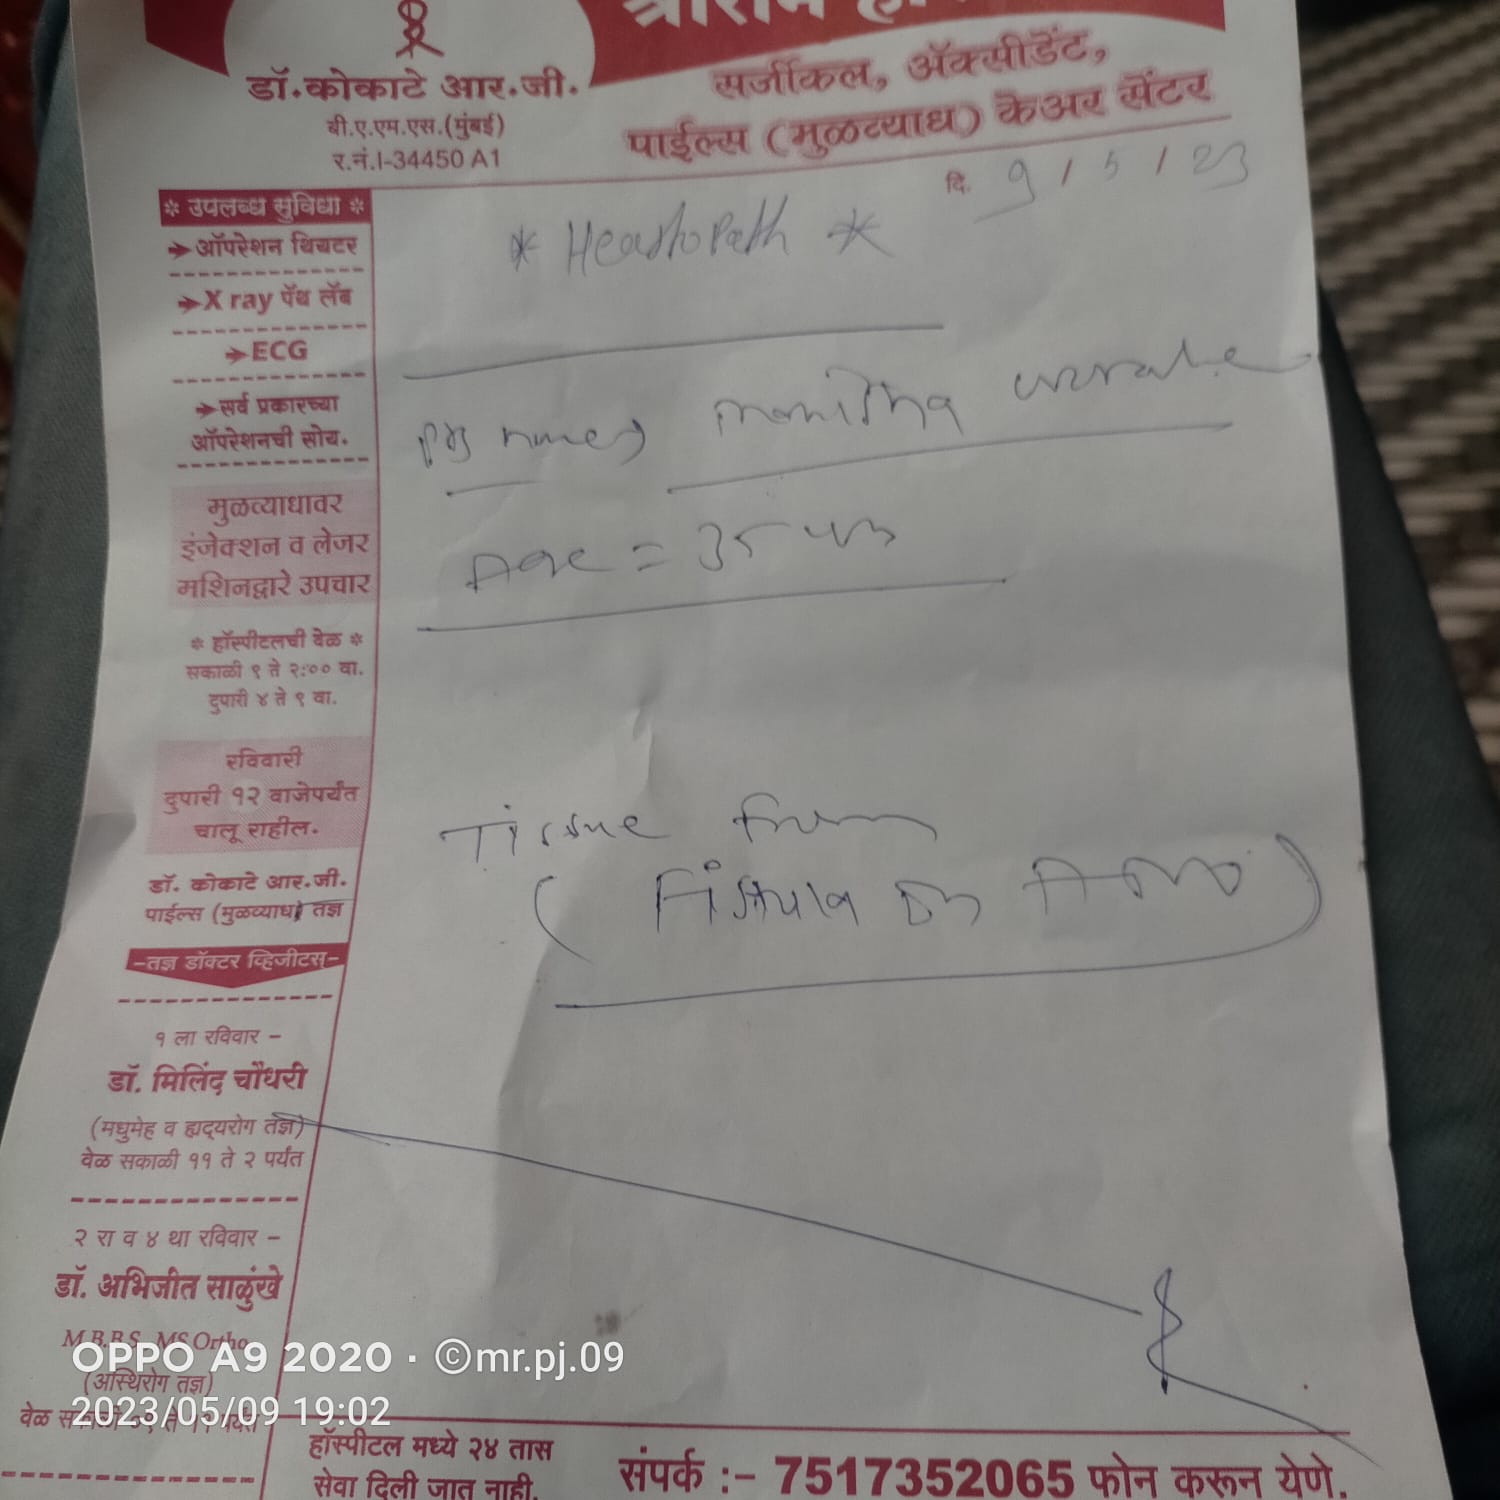 डॉ.कोकाटे आर.जी.
बी.ए.एम.एस.(मुंबई)
र.नं.I-34450 A1
सर्जीकल, ॲक्सीडेंट,
पाईल्स (मुळव्याध) केअर सेंटर
दि. 9/5/23
* उपलब्ध सुविधा *
ऑपरेशन थियटर
X ray पॅथ लॅब
ECG
सर्व प्रकारच्या
ऑपरेशनची सोय.
मुळव्याधावर
इंजेक्शन व लेजर
मशिनद्वारे उपचार
* हॉस्पीटलची वेळ *
सकाळी ९ ते २:०० वा.
दुपारी ४ ते ९ वा.
रविवारी
दुपारी १२ वाजेपर्यंत
चालू राहील.
डॉ. कोकाटे आर.जी.
पाईल्स (मुळव्याध) तज्ञ
-तज्ञ डॉक्टर व्हिजीटस्-
१ ला रविवार -
डॉ. मिलिंद चौधरी
(मधुमेह व ह्यदयरोग तज्ञ)
वेळ सकाळी ११ ते २ पर्यंत
२ रा व ४ था रविवार -
डॉ. अभिजीत साळुंखे
M.B.B.S. MS Ortho
(अस्थिरोग तज्ञ)
Age = 35
Tissue from
(Fistula in Ano)
OPPO A9 2020 · ©mr.pj.09
2023/05/09 19:02
हॉस्पीटल मध्ये २४ तास
सेवा दिली जात नाही.
संपर्क :- 7517352065 फोन करून येणे.